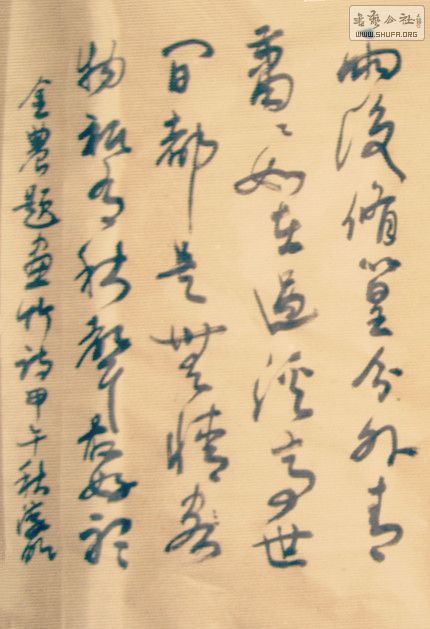 書藝公社
WWW.SHUFA.ORG
雨後脩篁分外青
蕭〻如在過溪亭世
間都是無情
物祇有秋聲最好聽
金農題畫竹詩甲午秋